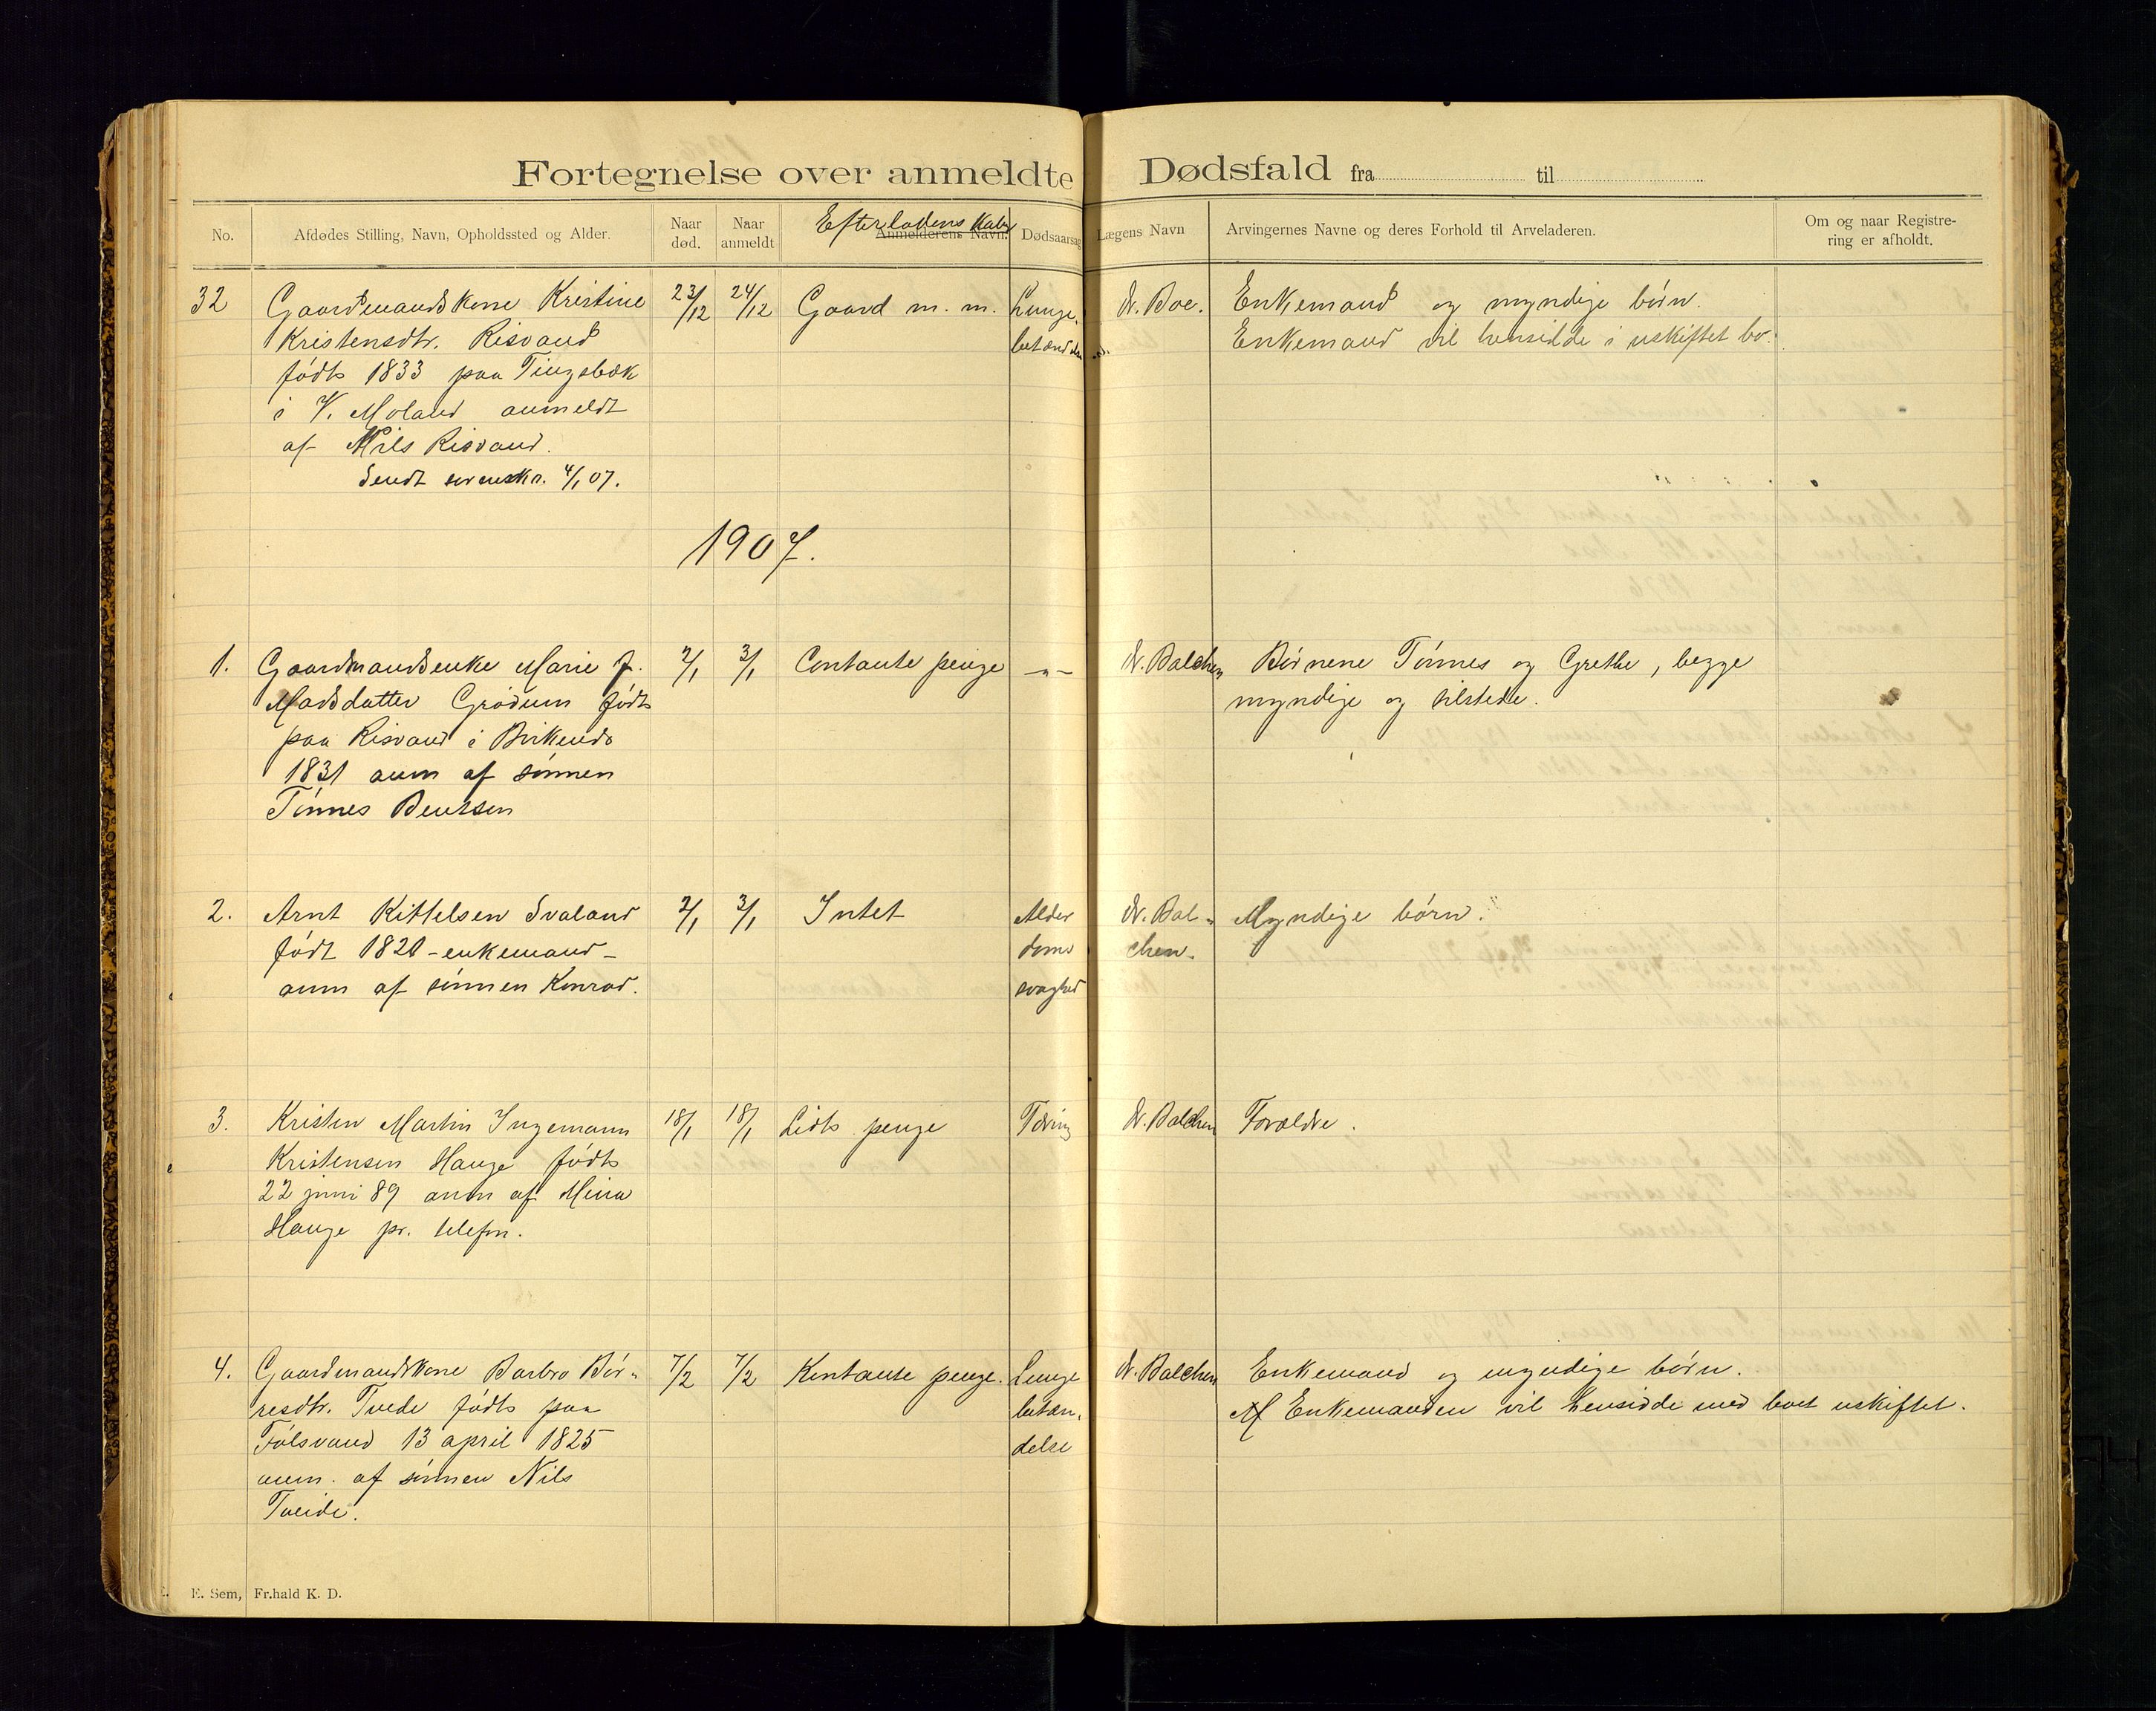 Fortegnelse over anmeldte Dødsfald fra til
No.
Afdødes Stilling, Navn, Opholdssted og Alder.
Naar død.
Naar anmeldt
Efterladenskaber
Anmelderens Navn.
Dødsaarsag
Lægens Navn
Arvingernes Navne og deres Forhold til Arveladeren.
Om og naar Registre-
ring er afholdt.
32 Gaardmandskone Kristine 23/12 24/12 Gaard m. m. Lunge- dr. Boe. Enkemand og myndige børn.
Kristensdtr. Risvand betændelse Enkemand vil hensidde i uskiftet bo.
født 1833 paa Tingsbæk
i V. Moland anmeldt
af Nils Risvand.
Sendt sorenskr. 4/1 07.
1907.
1. Gaardmandsenke Marie f. 2/1 3/1 Contante penge -"- dr. Balchen Børnene Tønnes og Grethe, begge
Madsdatter Grødum født myndige og tilstede.
paa Risvand i Birkenes
1831 anm af sønnen
Tønnes Bentsen
2. Arnt Kittelsen Svaland 2/1 3/1 Intet Alder dr. Bal- Myndige børn.
født 1820 - enkemand - doms chen.
anm af sønnen Konrad. svaghed
3. Kristen Martin Ingemann 18/1 18/1 Lidt penge Tæring dr. Balchen Forældre.
Kristensen Hauge født
22 juni 89 anm af Mina
Hauge pr. telefon.
4. Gaardmandskone Barbro Bør- 7/2 7/2 Kontante penge. Lunge dr. Balchen Enkemand og myndige børn.
resdtr. Tvede født paa betæn- Enkemanden vil hensidde med boet uskiftet.
Følsvand 13 april 1825 delse
anm. af sønnen Nils
Tveide.
E. Sem, Fr.hald K. D.